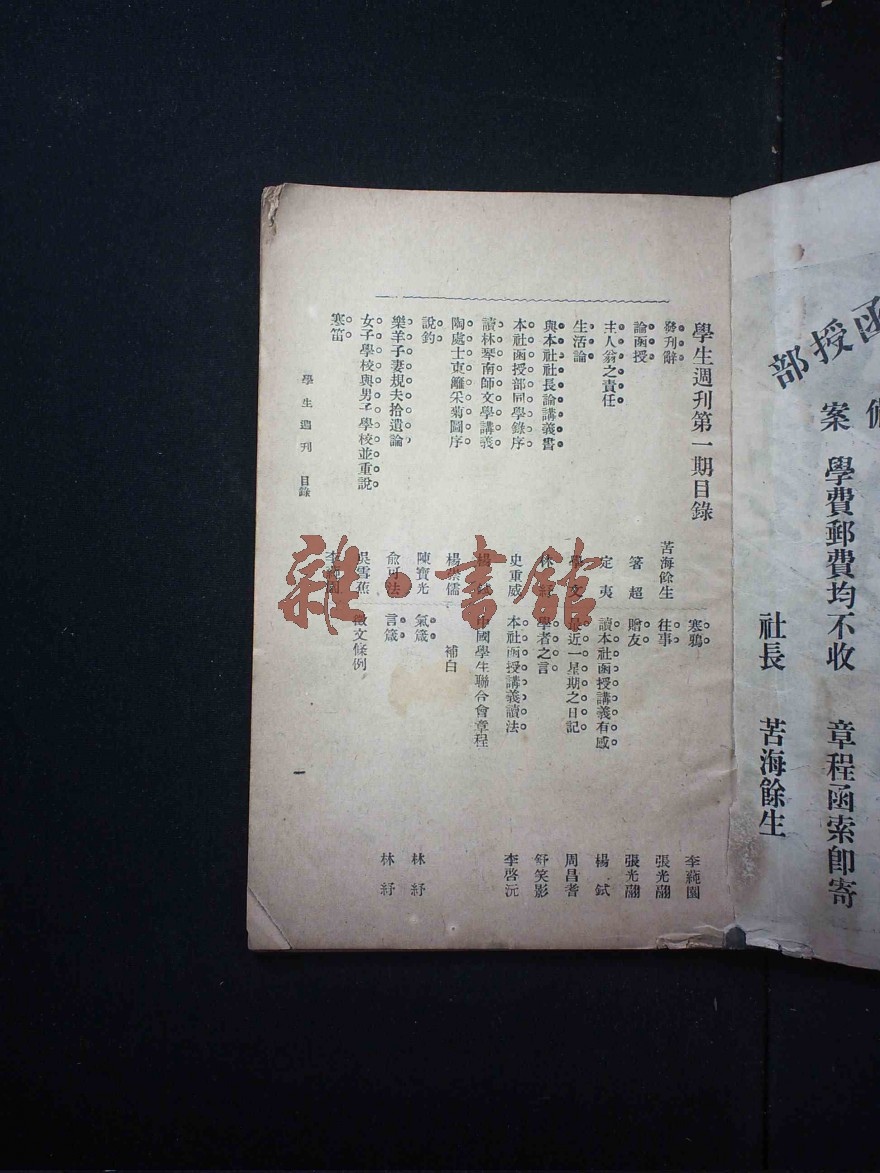 函授部
備案
學費郵費均不收 章程函索即寄
社長 苦海餘生
學生週刊第一期目錄
發刊辭 苦海餘生
論函授 箸超
主人翁之責任 定夷
生活論 學文
與本社社長論講義書 林紓
本社函授部同學錄序 史重威
讀林琴南師文學講義 楊弒
陶處士東籬采菊圖序 楊崇儒
說釣 陳寶光
樂羊子妻規夫拾遺論 俞可法
女子學校與男子學校並重說 吳雪蕉
寒笛 李蒓園
寒鴉 李蒓園
往事 張光翮
贈友 張光翮
讀本社函授講義有感 楊弒
最近一星期之日記 周昌耆
學者之言 舒笑影
本社函授講義讀法 李啓沅
中國學生聯合會章程
補白
氣箴 林紓
言箴 林紓
徵文條例
學生週刊 目錄
一
雜·書館